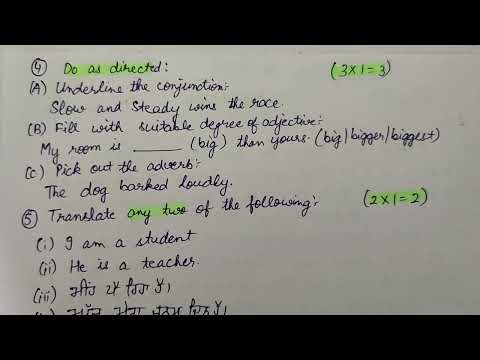 ④ Do as directed: (3×1=3)
(A) Underline the conjunction:
Slow and Steady wins the race.
(B) Fill with suitable degree of adjective:
My room is ______ (big) than yours. (big/bigger/biggest)
(C) Pick out the adverb:
The dog barked loudly.
⑤ Translate any two of the following: (2×1=2)
(i) I am a student
(ii) He is a teacher.
(iii) ਮੀਂਹ ਪੈ ਰਿਹਾ ਹੈ।
ਮੇਰਾ ਜਨਮ ਦਿਨ ਹੈ।